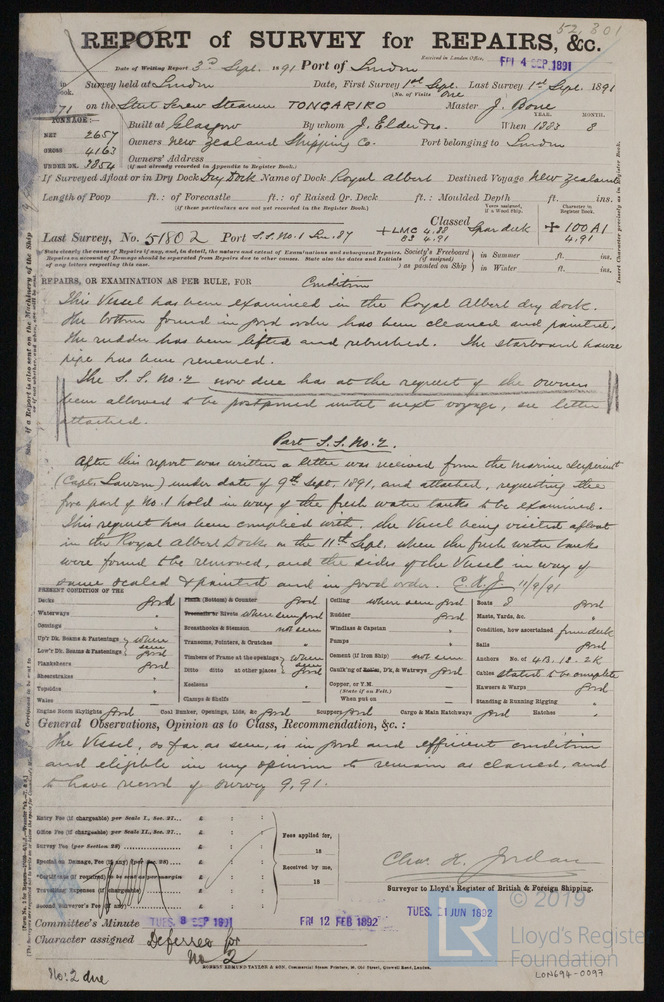 52,301
REPORT of SURVEY for REPAIRS, &c.
Date of Writing Report 3rd Sept. 1891 Port of London
Received in London Office, FRI 4 SEP. 1891
Survey held at London Date, First Survey 1st Sept. Last Survey 1st Sept. 1891
(No. of Visits One
on the Steel Screw Steamer TONGARIRO Master J. Bone
TONNAGE: YEAR. MONTH.
NET 2657 Built at Glasgow By whom J. Elder & Co. When 1883 8
GROSS 4163 Owners New Zealand Shipping Co. Port belonging to London
UNDER DK. 3854 Owners' Address
(if not already recorded in Appendix to Register Book.)
If Surveyed Afloat or in Dry Dock Dry Dock Name of Dock Royal Albert Destined Voyage New Zealand
Length of Poop ft.: of Forecastle ft.: of Raised Qr. Deck ft.: Moulded Depth ft. ins.
(if these particulars are not yet recorded in the Register Book.)
Classed Spar deck + 100A1
Last Survey, No. 51802 Port S.S. No. 1 Lon. 87 + LMC 4.88 4.91
BS 4.91
Society's Freeboard (if assigned) as painted on Ship in Summer ft. ins.
in Winter ft. ins.
REPAIRS, OR EXAMINATION AS PER RULE, FOR Condition
This Vessel has been examined in the Royal Albert dry dock.
The bottom found in good order has been cleaned and painted.
The rudder has been lifted and rebushed. The starboard hawse
pipe has been renewed.
The S.S. No. 2 now due has at the request of the owners
been allowed to be postponed until next voyage, see letter
attached.
Part S.S. No. 2.
After this report was written a letter was received from the Marine Superint
(Capt. Lawson) under date of 9th Sept. 1891, and attached, requesting the
fore part of No. 1 hold in way of the fresh water tanks to be examined.
This request has been complied with, the Vessel being visited afloat
in the Royal Albert Dock on the 11th Sept. when the fresh water tanks
were found to be removed, and the sides of the Vessel in way of
same scaled & painted and in good order. C.H.J. 11/9/91
PRESENT CONDITION OF THE
Decks good
Waterways
Comings
Up'r Dk. Beams & Fastenings where
Low'r Dk. Beams & Fastenings seen good
Planksheers good
Sheerstrakes
Topsides
Wales
Plank (Bottom) & Counter good
Treenails to Rivets where seen good
Breasthooks & Stemson not seen
Transoms, Pointers, & Crutches
Timbers of Frame at the openings where
Ditto ditto at other places seen good
Keelsons
Clamps & Shelfs
Ceiling where seen good
Rudder good
Windlass & Capstan
Pumps
Cement (if Iron Ship) not seen
Caulk'ng of Bottom, D'k, & Watrwys good
Copper, or Y.M.
(State if on Felt.)
When put on
Boats 8 good
Masts, Yards, &c.
Condition, how ascertained from deck
Sails good
Anchors No. of 4B. 1S. 2K
Cables stated to be complete
Hawsers & Warps good
Standing & Running Rigging
Engine Room Skylights good Coal Bunker, Openings, Lids, &c. good Scuppers good Cargo & Main Hatchways good Hatches
General Observations, Opinion as to Class, Recommendation, &c.:
The Vessel, so far as seen, is in good and efficient condition
and eligible in my opinion to remain as classed, and
to have record of survey 9.91.
Entry Fee (if chargeable) per Scale I., Sec. 27... £ : :
Office Fee (if chargeable) per Scale II., Sec. 27... £ : :
Survey Fee (per Section 28) £ : :
Special or Damage Fee (if any) (per Sec. 28) £ : :
Certificate (if required) to be sent as per margin
Travelling Expenses (if chargeable) £ : :
Second Surveyor's Fee (if any) £ : :
Fees applied for,
18
Received by me,
18
Chas. H. Jordan
Surveyor to Lloyd's Register of British & Foreign Shipping.
Committee's Minute TUES. 8 SEP 1891 FRI 12 FEB 1892 TUES. 21 JUN 1892
Character assigned Deferred for
No. 2
No: 2 due
ROBERT EDMUND TAYLOR & SON, Commercial Steam Printers, 19, Old Street, Goswell Road, London.
© 2019
LR
Lloyd's Register
Foundation
LON694-0097